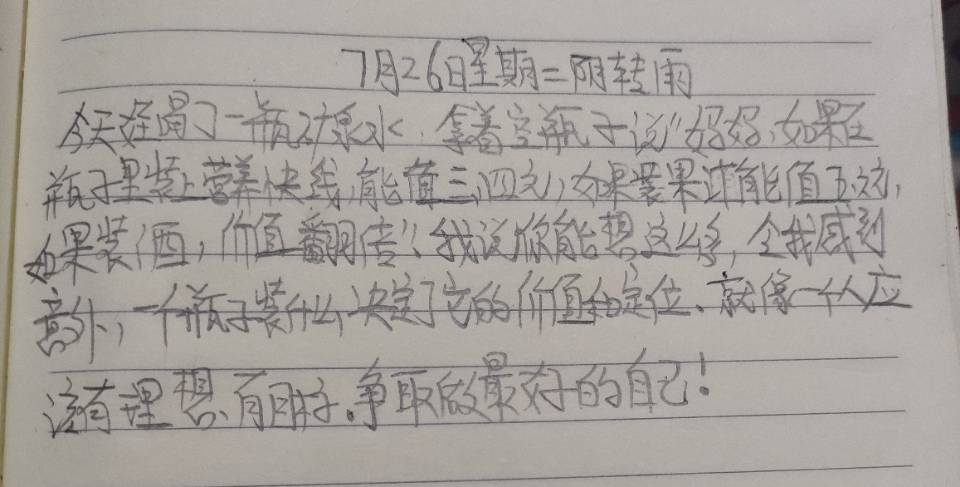 7月26日星期二阴转雨
今天侄喝了一瓶矿泉水,拿着空瓶子说"妈妈,如果在
瓶子里装上营养快线,能值三、四元,如果装果汁能值五元,
如果装酒,价值翻倍"、我说你能想这么多,令我感到
意外,一个瓶子装什么决定了它的价值和定位、就像一个人应
该有理想、有目标.争取做最好的自己!